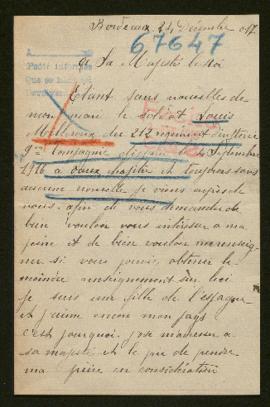 Bordeaux 24 Décembre 1917
67647
A Sa Majesté le Roi
Etant sans nouvelles de
mon mari le soldat Louis
du 212 régiment d'infanterie
9me Compagnie disparu le 4 Septembre
1916 a vaux chapitre et toujours sans
aucune nouvelle je viens auprès de
vous afin de vous demander de
bien vouloir vous intéresser a ma
peine et de bien vouloir me renseigner
si vous pouvez obtenir le
moindre renseignement sur lui
je suis une fille de l'espagne
et j'aime encore mon pays
c'est pourquoi j'ose m'adresser a
sa majesté et le prie de prendre
ma prière en considération